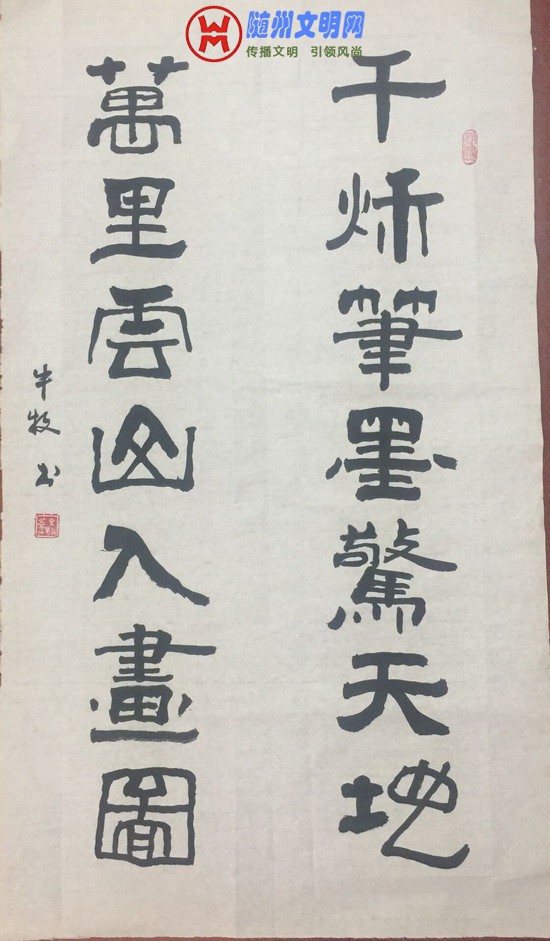 随州文明网
传播文明 引领风尚
千秌筆墨驚天地
萬里雲山入畫圖
牛牧书